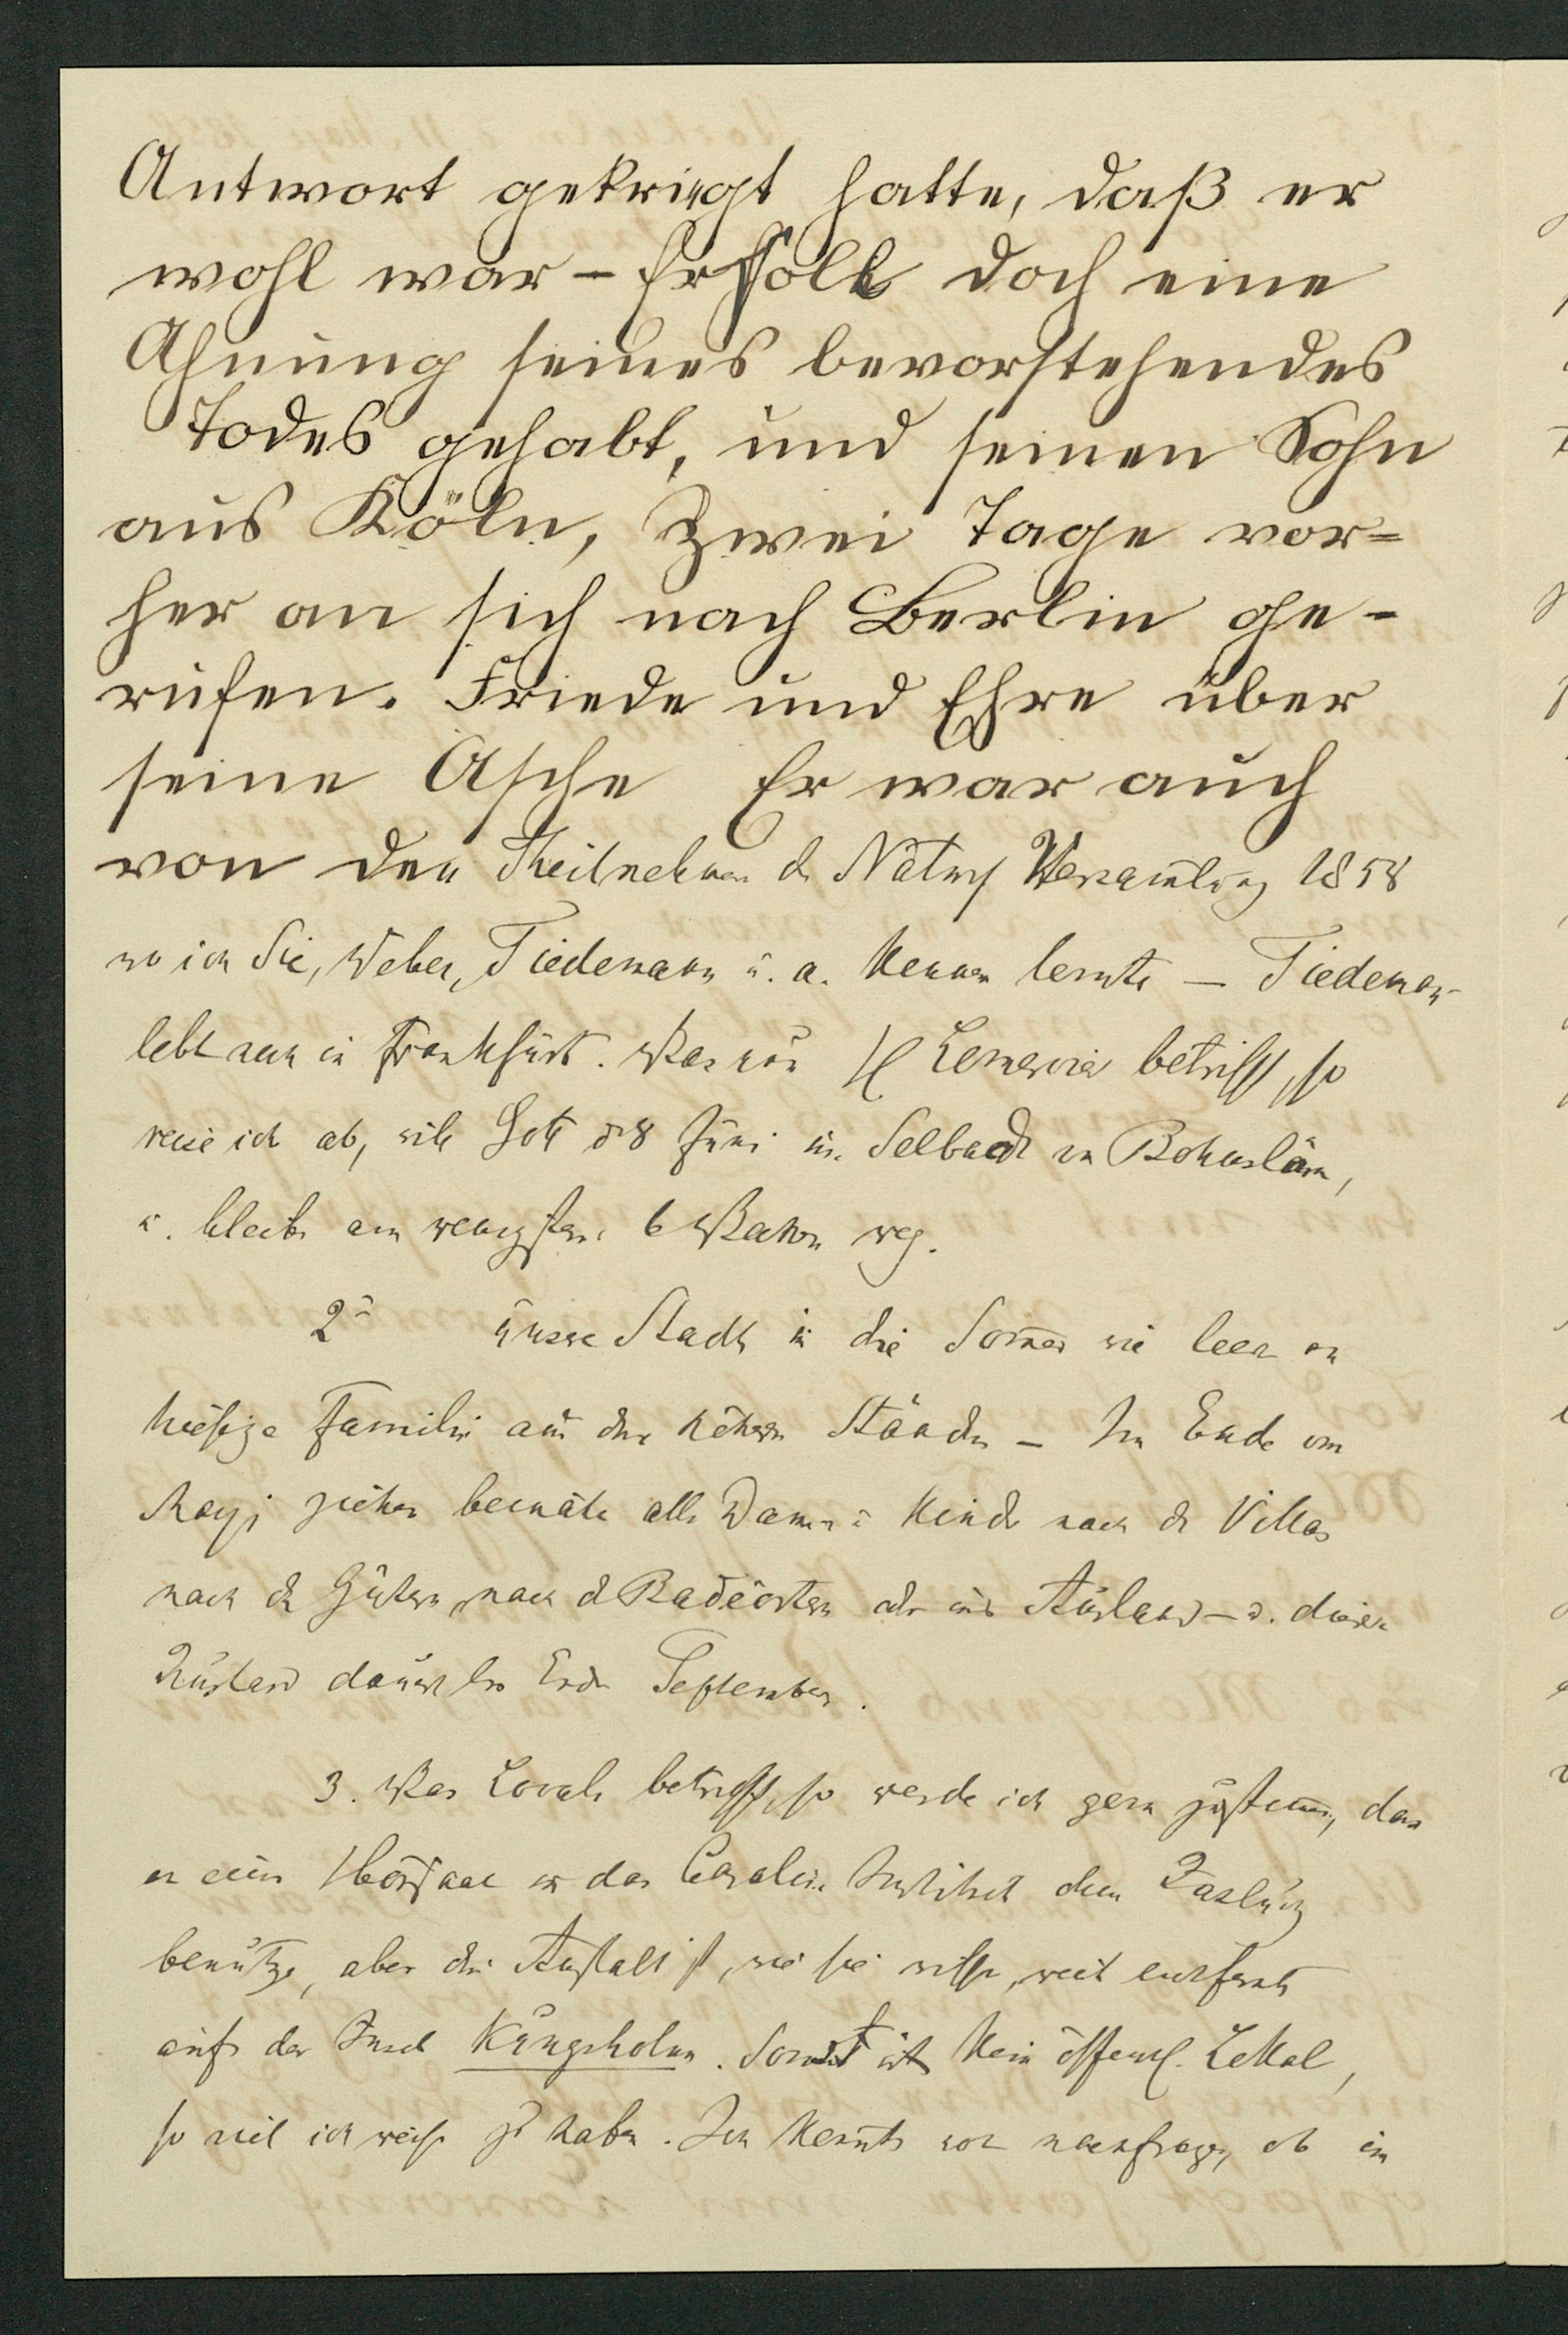 Antwort gekriegt hatte, daß er
wohl war – Er soll doch eine
Ahnung seines bevorstehendes
Todes gehabt, und seinen Sohn
aus Köln, zwei Tage vor=
her an sich nach Berlin ge-
rufen. Friede und Ehre über
seine Asche Er war auch
von den Theilnehmern d. Naturf Versamlung 1858
wo ich Sie, Weber, Tiedemann u. a. kennen lernte — Tiedeman
lebt noch in Frankfurt. Was nun betrifft, so
reise ich ab, will Gott d 8 Juni in Bohuslän,
u. bleibe am wenigstens 6 Wochen weg.
2° unsere Stadt in die Sommer wie leer an
hiesige Familie aus den höhern Stände – Im Ende von
Maji ziehen beinahe alle Damen u Kinder nach d Villas
nach d Gütern, nach d Badeörtern oder ins Ausland – u. diesen
Zustand dauert bis Ende September.
3. Was Locale betrifft, so werde ich gern zustimmen, dass
er ein Hörsaal in das Carolin. Institut
benutze, aber die Anstalt ist, wie sie wissen, weit entfernt
auf der Insel Kungsholm. Sonst ist kein öffentl. Lokal,
so viel ich weiss zu haben. Ich konnte nachfragen, ob im